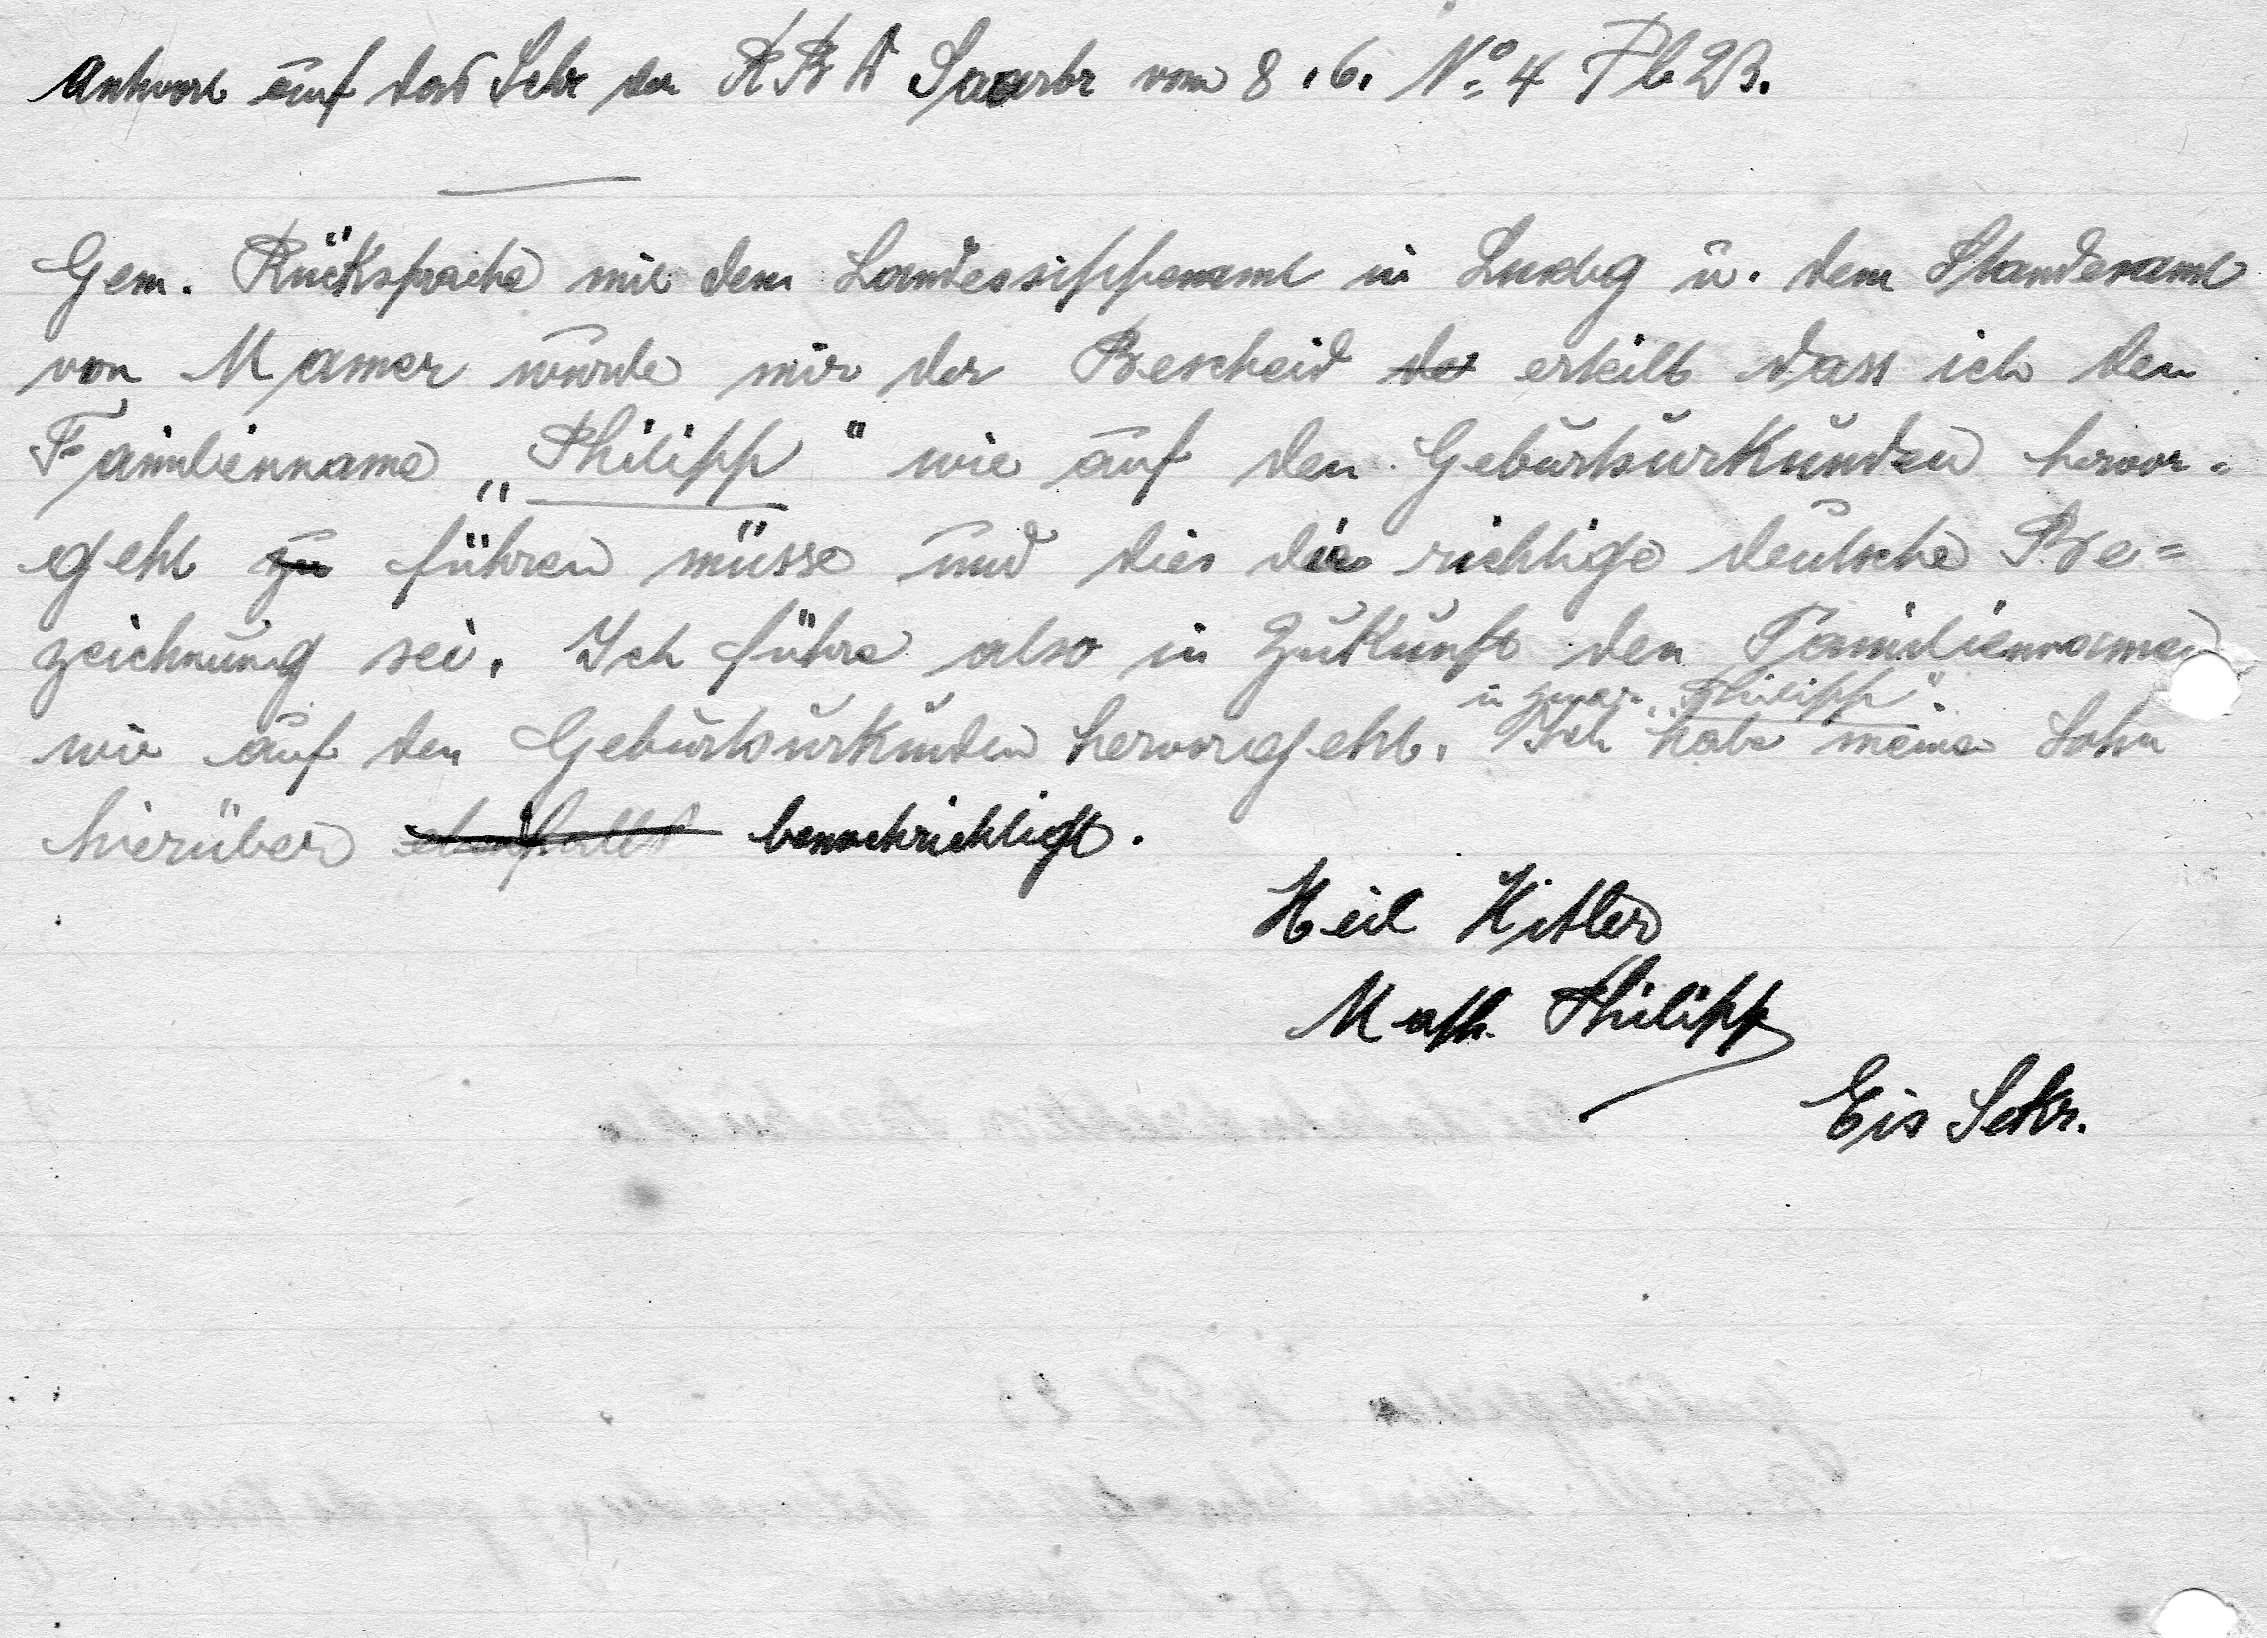 Antwort auf das Schr der RBD Saarbr vom 8.6. No 4 Pb 23.
Gem. Rücksprache mit dem Landessippenamt in Luxbg u. dem Standesamt
von Mamer wurde mir der Bescheid de erteilt dass ich den
Familienname „Philipp" wie auf den Geburtsurkunden hervor-
geht zu führen müsse und dies die richtige deutsche Be=
zeichnung sei. Ich führe also in Zukunft den Familiennamen
u zwar „Philipp".
wie auf den Geburtsurkunden hervorgeht. Ich habe meinen Sohn
hierüber ebenfalls benachrichtigt.
Heil Hitler
Math. Philipp
Eis Sekr.